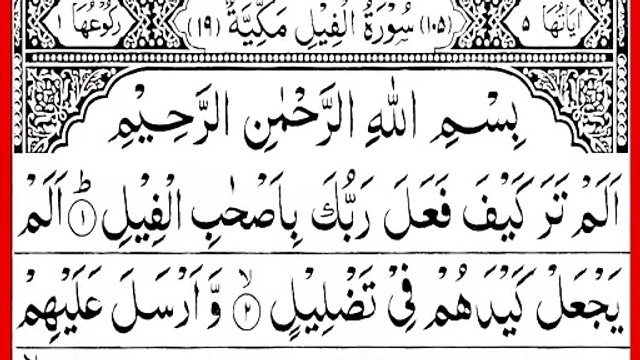 اٰیَاتُهَا ٥ (١٠٥) سُوْرَةُ الْفِيْلِ مَكِّيَّةٌ (١٩) رُكُوْعُهَا ١
بِسْمِ اللّٰهِ الرَّحْمٰنِ الرَّحِيْمِ
اَلَمْ تَرَ كَيْفَ فَعَلَ رَبُّكَ بِاَصْحٰبِ الْفِيْلِ ؕ﴿١﴾ اَلَمْ
يَجْعَلْ كَيْدَهُمْ فِيْ تَضْلِيْلٍ ۙ﴿٢﴾ وَّ اَرْسَلَ عَلَيْهِمْ